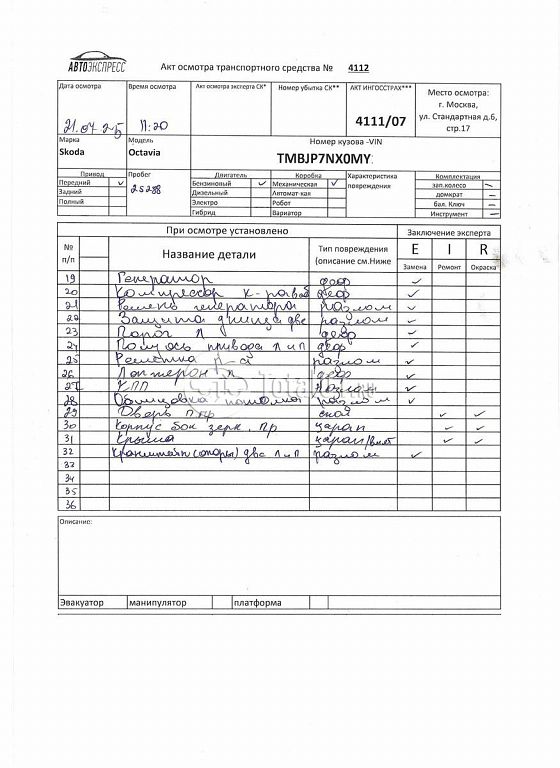 АВТОЭКСПРЕСС
Акт осмотра транспортного средства № 4112
Дата осмотра Время осмотра Акт осмотра эксперта СК* Номер убытка СК** АКТ ИНГОССТРАХ*** Место осмотра:
г. Москва,
ул. Стандартная д.6,
стр.17
11:20 4111/07
Марка Модель Номер кузова -VIN
Skoda Octavia TMBJP7NX0MY
Привод Пробег Двигатель Коробка Характеристика повреждения Комплектация
Передний ✓ 25288 Бензиновый ✓ Механическая ✓ зап.колесо –
Задний Дизельный Автомат-кая домкрат –
Полный Электро Робот бал. Ключ –
Гибрид Вариатор Инструмент –
При осмотре установлено Заключение эксперта
№ п/п Название детали Тип повреждения (описание см.Ниже E I R
Замена Ремонт Окраска
19 Генератор деф ✓
20 Компрессор к- деф ✓
21 Ремень генератора разлом ✓
22 Защита днища две разлом ✓
23 Порог Л деф ✓
24 Полуось привода Л и П деф ✓
25 разлом ✓
26 Лонжерон деф ✓
27 КПП разлом ✓
28 Облицовка разлом ✓
29 Дверь П пр ✓ ✓
30 Корпус бок зерк. Пр царап ✓ ✓
31 Крыша царап/вмят ✓ ✓
32 Кронштейн(опоры) две Л и П разлом ✓
33
34
35
36
Описание:
Эвакуатор манипулятор платформа